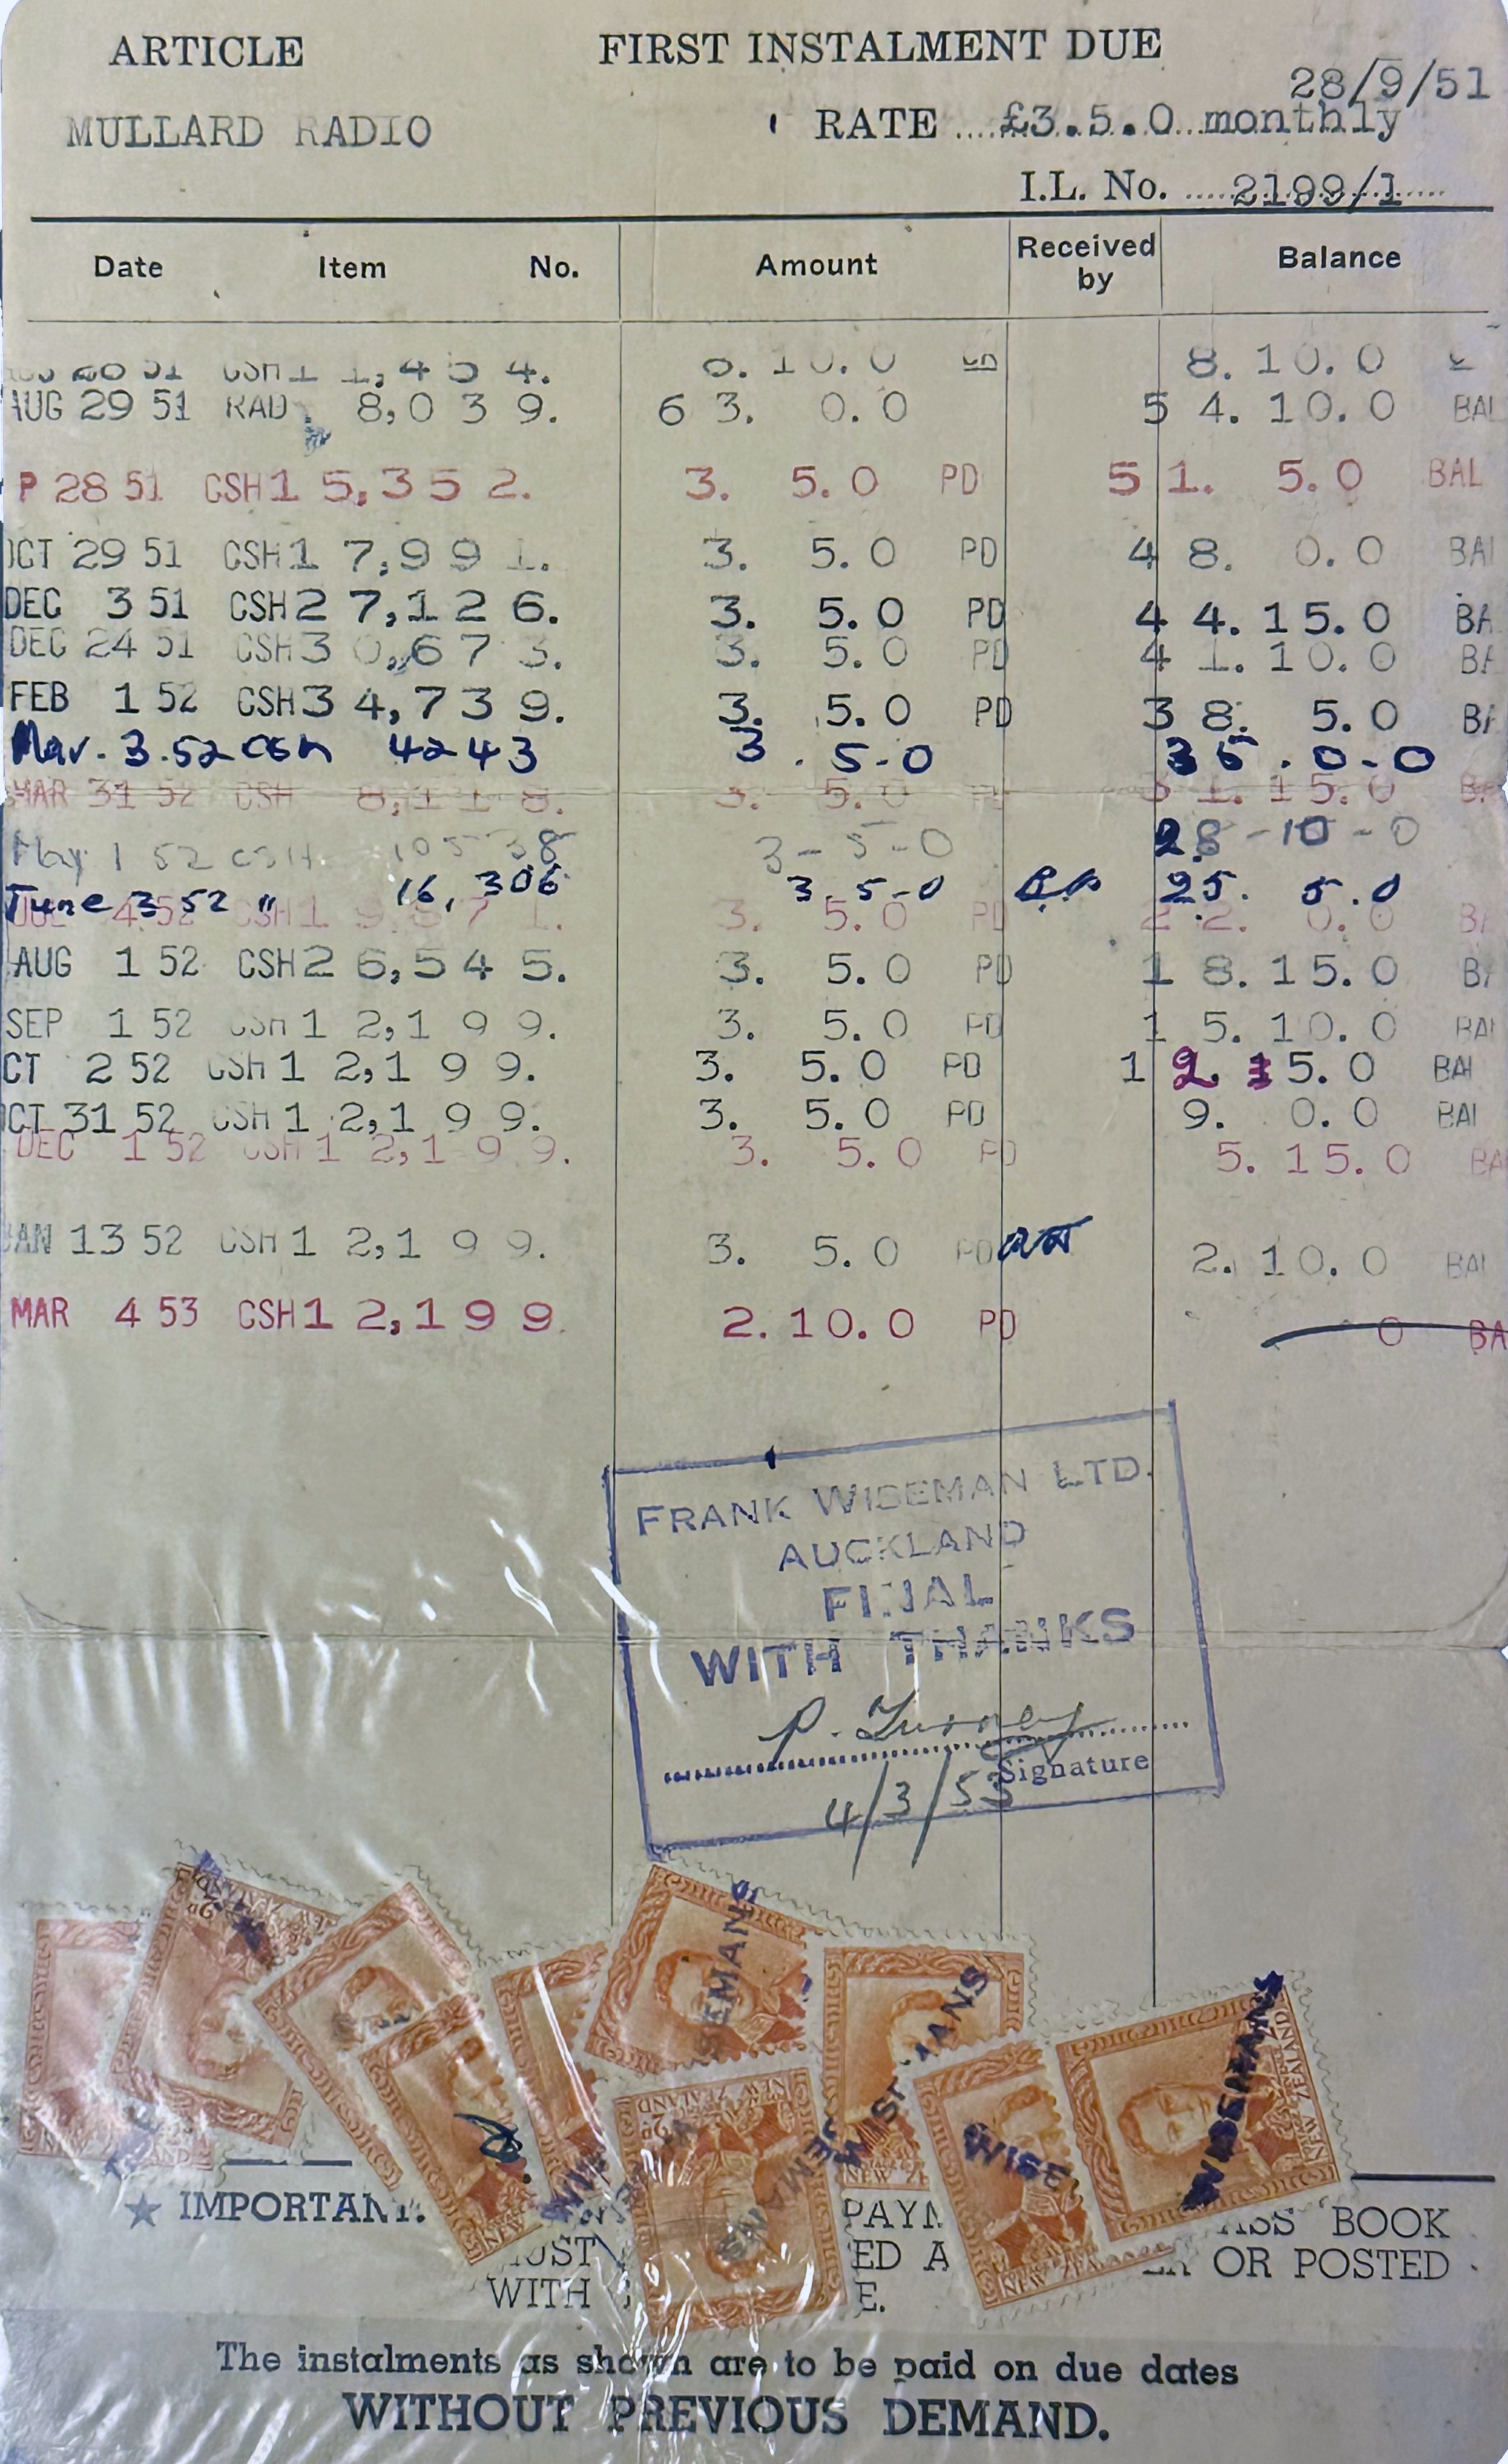 ARTICLE FIRST INSTALMENT DUE
28/9/51
MULLARD RADIO RATE £3.5.0 monthly
I.L. No. 2199/1
Date Item No. Amount Received by Balance
51 CSH 11,454. 8.10.0 8.10.0
AUG 29 51 RAD 8,039. 63. 0.0 54.10.0 BAL
P 28 51 CSH 15,352. 3. 5.0 PD 51. 5.0 BAL
OCT 29 51 CSH 17,991. 3. 5.0 PD 48. 0.0 BAL
DEC 3 51 CSH 27,126. 3. 5.0 PD 44.15.0 BA
DEC 24 51 CSH 30,673. 3. 5.0 PD 41.10.0 BA
FEB 1 52 CSH 34,739. 3. 5.0 PD 38. 5.0 BA
Mar. 3.52 csh 4243 3 . 5-0 35 . 0-0
MAR 31 52 CSH 8,118. 3. 5.0 PD 31.15.0 BA
May 1 52 CSH. 10538 3-5-0 28-10-0
June 3 52 " 16,306 3 5-0 25. 5.0
4 52 CSH 19,871. 3. 5.0 PD 22. 0.0 BA
AUG 1 52 CSH 26,545. 3. 5.0 PD 18.15.0 BA
SEP 1 52 CSH 12,199. 3. 5.0 PD 15.10.0 BAL
CT 2 52 CSH 12,199. 3. 5.0 PD 12. 5.0 BAL
OCT 31 52 CSH 12,199. 3. 5.0 PD 9. 0.0 BAL
DEC 1 52 CSH 12,199. 3. 5.0 PD 5.15.0 BA
JAN 13 52 CSH 12,199. 3. 5.0 PD 2.10.0 BAL
MAR 4 53 CSH 12,199 2.10.0 PD 0 BA
FRANK WISEMAN LTD.
AUCKLAND
FINAL
WITH THANKS
Signature
4/3/53
NEW ZEALAND
WISEMANS
★ IMPORTANT. PAYM BOOK
MUST ED A OR POSTED
WITH E.
The instalments as shown are to be paid on due dates
WITHOUT PREVIOUS DEMAND.